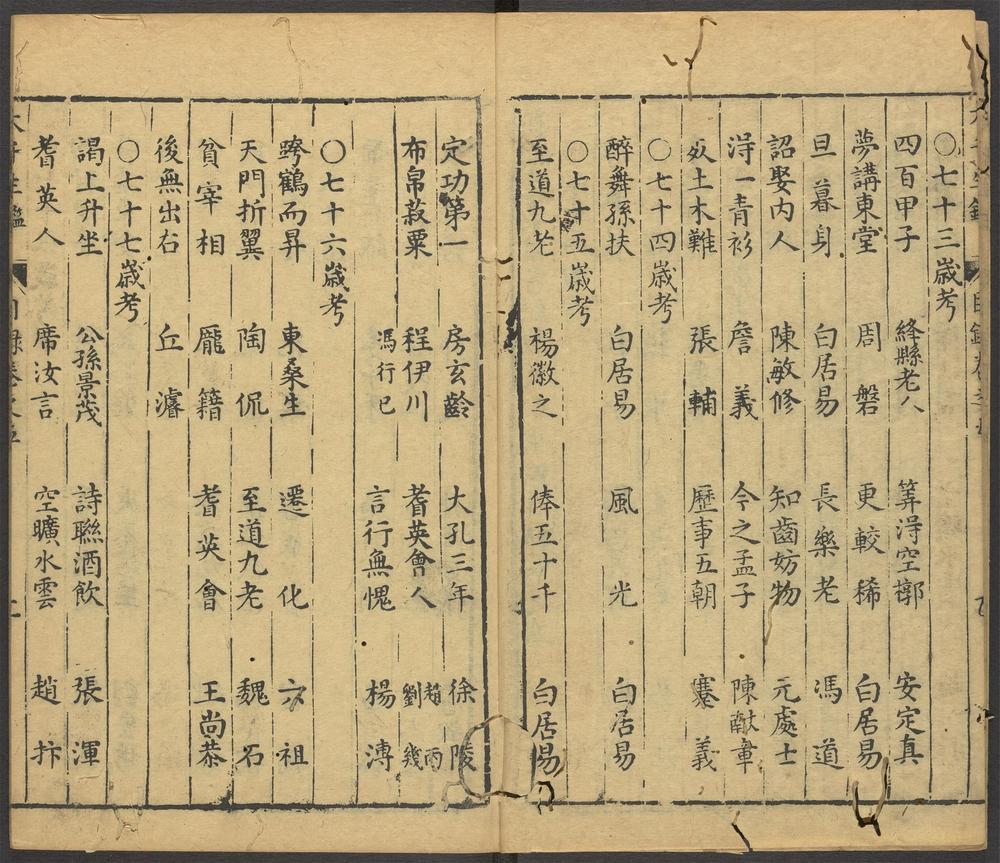 ○七十三歲考
四百甲子 絳縣老人 筭淂空槨 安定真
夢講東堂 周磐 更較稀 白居易
旦暮身 白居易 長樂老 馮道
詔娶内人 陳敏修 知齒妨物 元處士
淂一青衫 詹義 今之孟子 陳猷章
土木難 張輔 歷事五朝 蹇義
○七十四歲考
醉舞孫扶 白居易 風光 白居易
○七十五歲考
至道九老 楊徽之 俸五十千 白居易
定功第一 房玄齡 大孔三年 徐陵
布帛菽粟 程伊川 耆英會人 趙丙 劉幾
馮行已 言行無愧 楊溥
○七十六歲考
跨鶴而昇 東桑生 遷化 六祖
天門折翼 陶侃 至道九老 魏石
貧宰相 龎籍 耆英會 王尚恭
後無出右 丘濬
○七十七歲考
謁上升坐 公孫景茂 詩聯酒飲 張渾
耆英人 席汝言 空曠水雲 趙抃